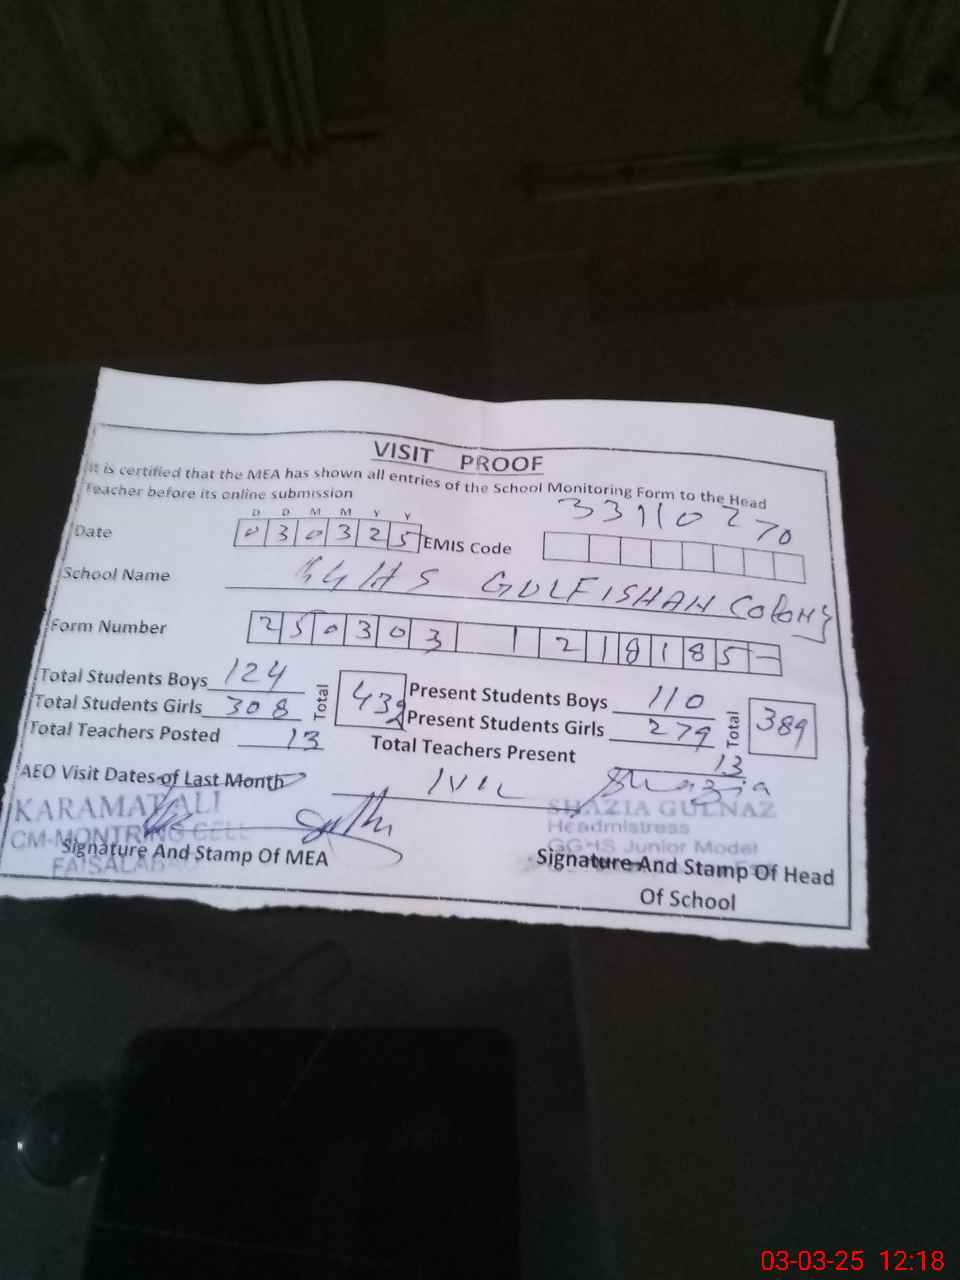 VISIT PROOF
It is certified that the MEA has shown all entries of the School Monitoring Form to the Head
Teacher before its online submission
33110270
D D M M Y Y
Date 030325 EMIS Code
School Name GGHS GULFISHAN Colony
Form Number 250303 1 218185-
Total Students Boys 124 Total 432 Present Students Boys 110 Total 389
Total Students Girls 308 Present Students Girls 279
Total Teachers Posted 13 Total Teachers Present 13
AEO Visit Dates of Last Month Shazia
KARAMAT ALI SHAZIA GULNAZ
CM-MONTRING CELL Headmistress
FAISALABAD GGHS Junior Model
Signature And Stamp Of MEA Signature And Stamp Of Head
Of School
03-03-25 12:18